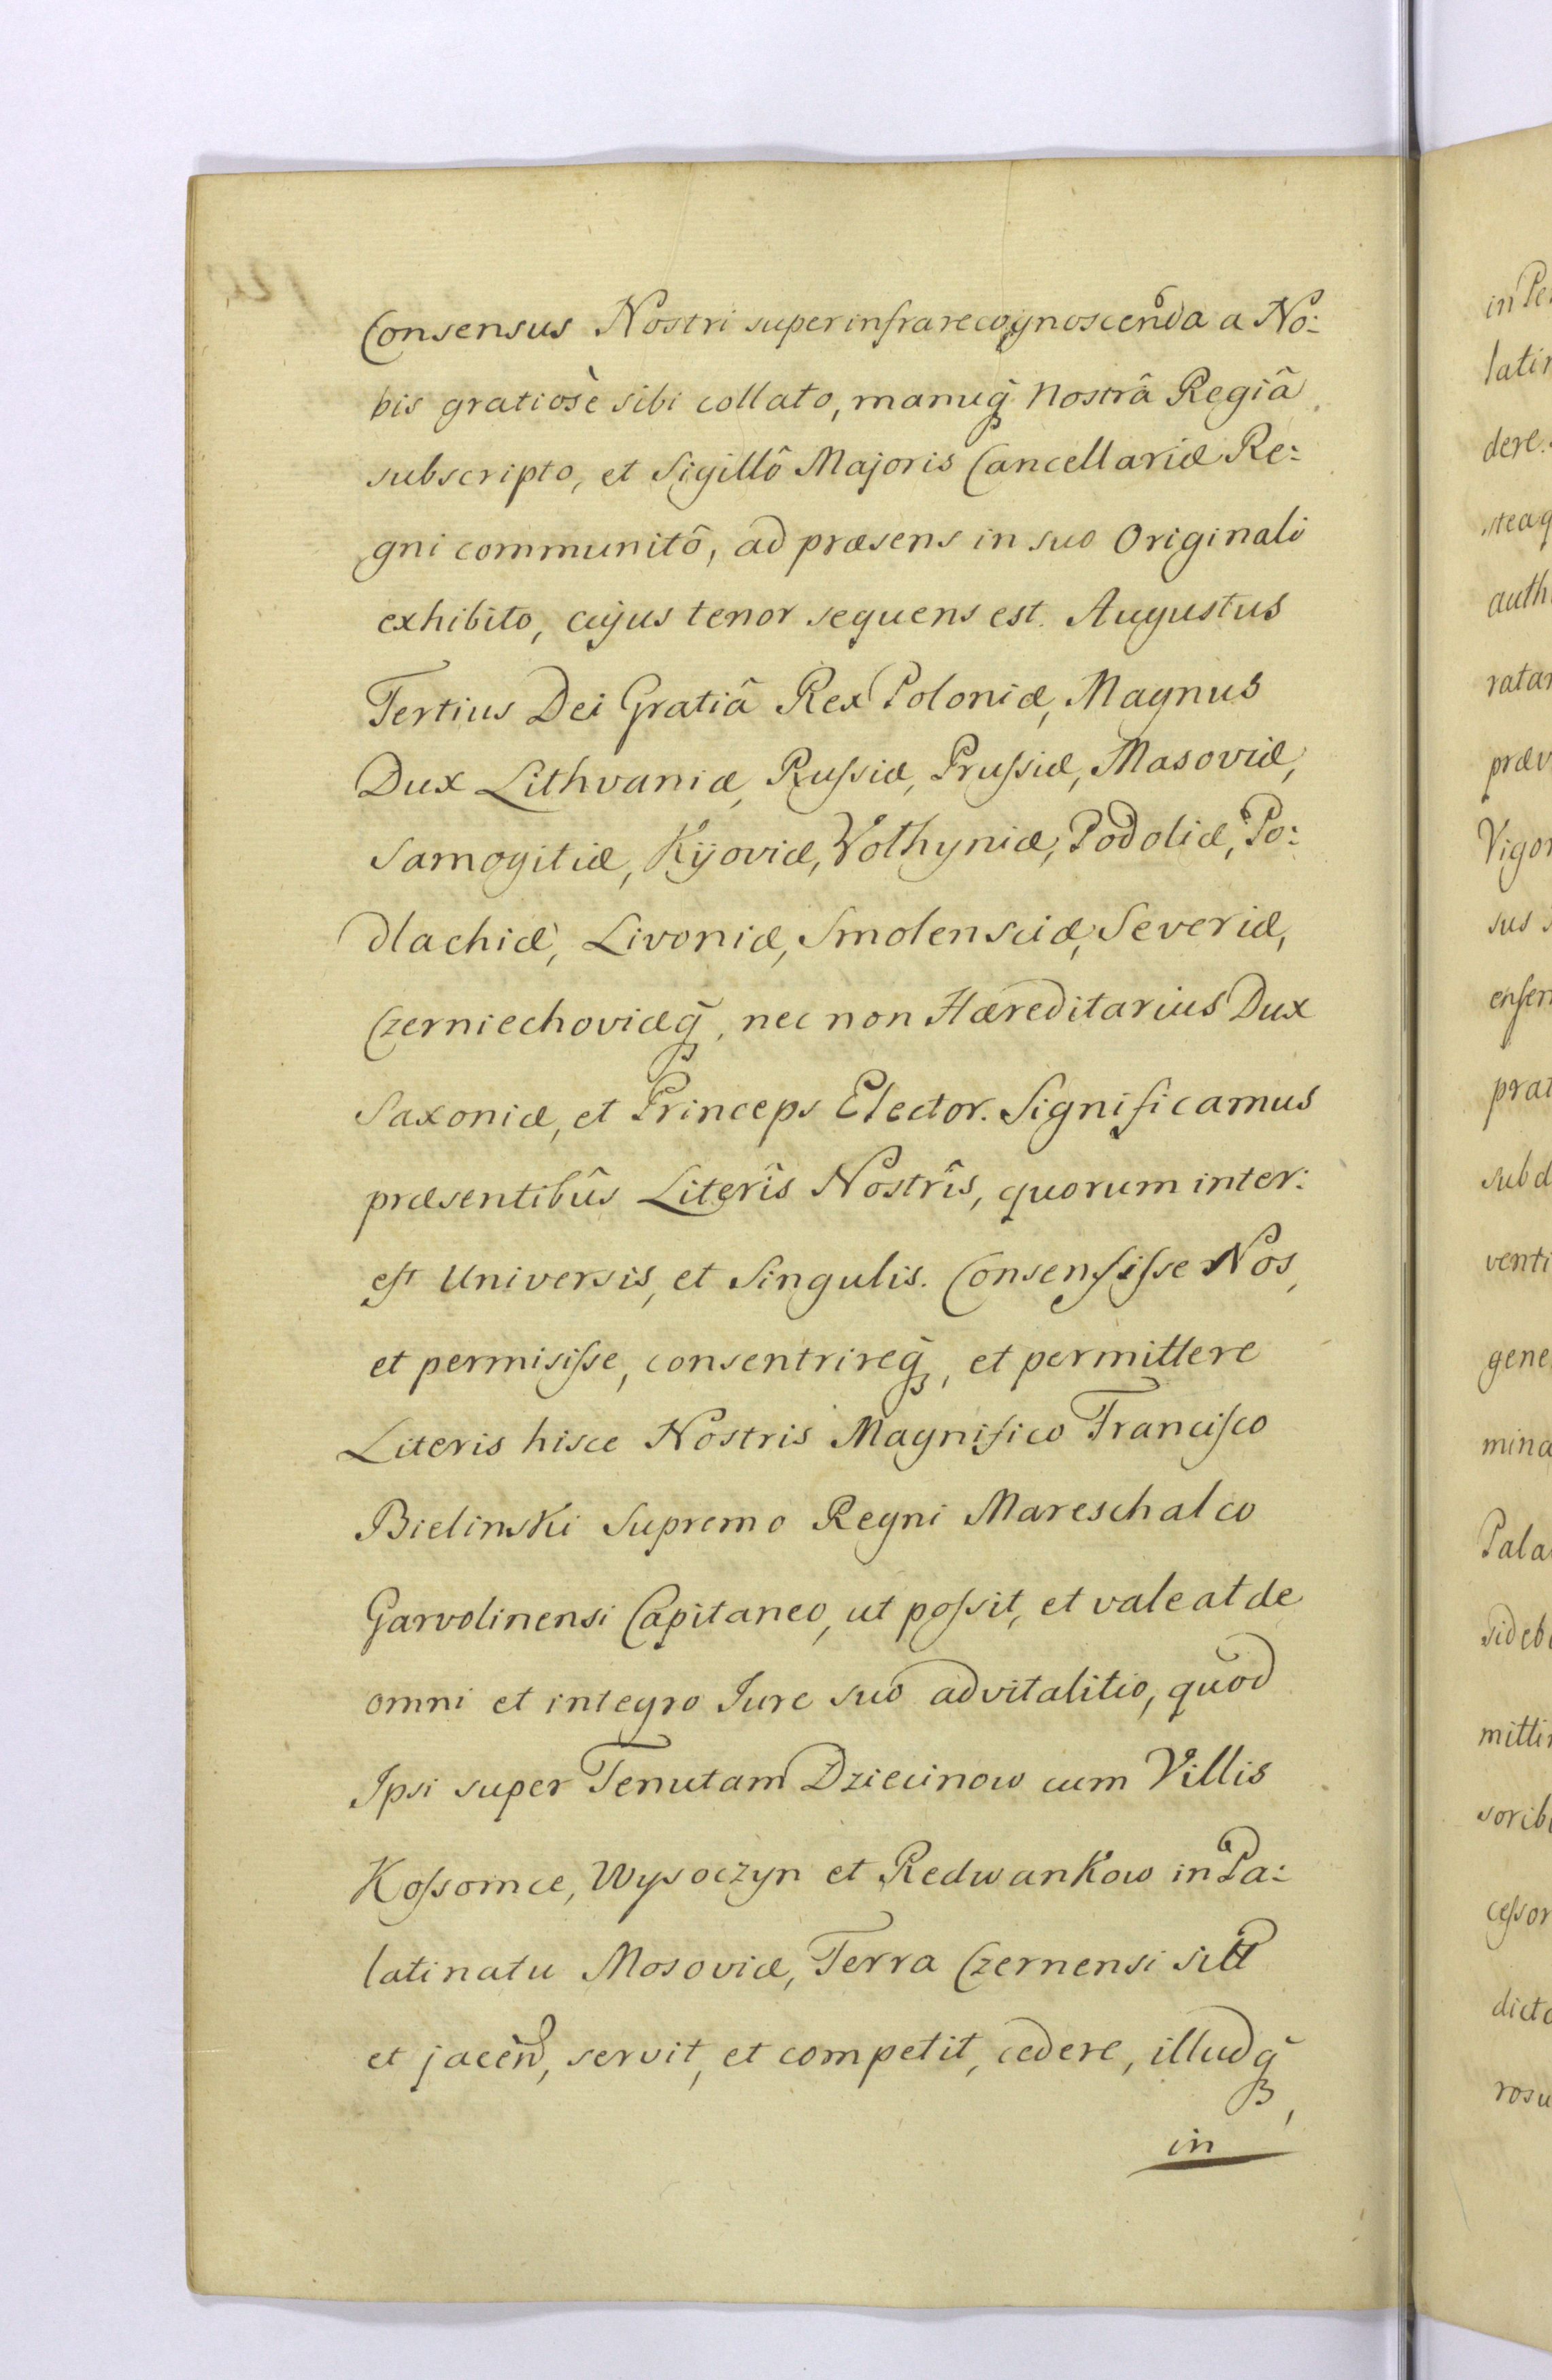 Consensus Nostri super infra recognoscenda a No:
bis gratiosè sibi collato, manuq̃ Nostrâ Regiâ
subscripto, et Sigillô Majoris Cancellariæ Re:
gni communitô, ad præsens in suo Originali
exhibito, cujus tenor sequens est. Augustus
Tertius Dei Gratiâ Rex Poloniæ, Magnus
Dux Lithvaniæ, Rusſiæ, Prusſiæ, Masoviæ,
Samogitiæ, Kijoviæ, Volhyniæ, Podoliæ, Po:
dlachiæ, Livoniæ, Smolensciæ, Severiæ,
Czerniechoviæq̃, nec non Hæreditarius Dux
Saxoniæ, et Princeps Elector. Significamus
præsentibûs Literîs Nostrîs, quorum inter:
eſt Universis, et Singulis. Consensiſse Nos,
et permisiſse, consentrireq̃, et permittere
Literis hisce Nostris Magnifico Franciſco
Bielinski Supremo Regni Mareschalco
Garvolinensi Capitaneo, ut poſsit, et valeat de
omni et integro Jure suo advitalitio, quod
Ipsi super Tenutam Dziecinow cum Villis
Koſsomce, Wysoczyn et Redwankow in Pa:
latinatu Mosoviæ, Terra Czernensi sitt
et jacen̄d, servit, et competit, cedere, illudq̃,
in
in
latin
dere.
steaq
auth
ratar
præv
Vigor
sus
enſen
prat
subd
venti
gene
mina
Pala
sideb
mitti
sorib
ceſsor
dicto
rosu